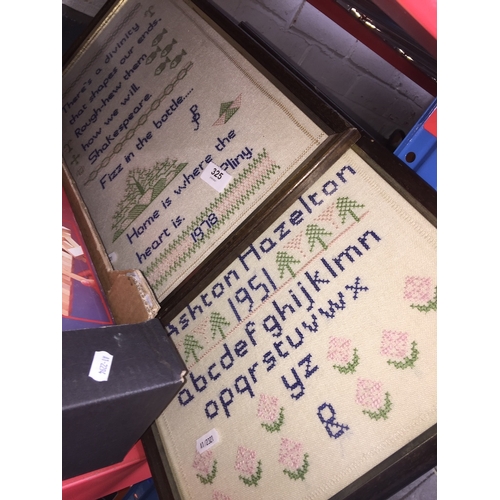 There's a divinity
that shapes our ends.
Rough-hew them
how we will.
Shakespeare.
Fizz in the bottle....
Home is where the
heart is. Pliny.
1978
325
Ashton Hazelton
1951
abcdefghijklmn
opqrstuvwxyz
yz
&